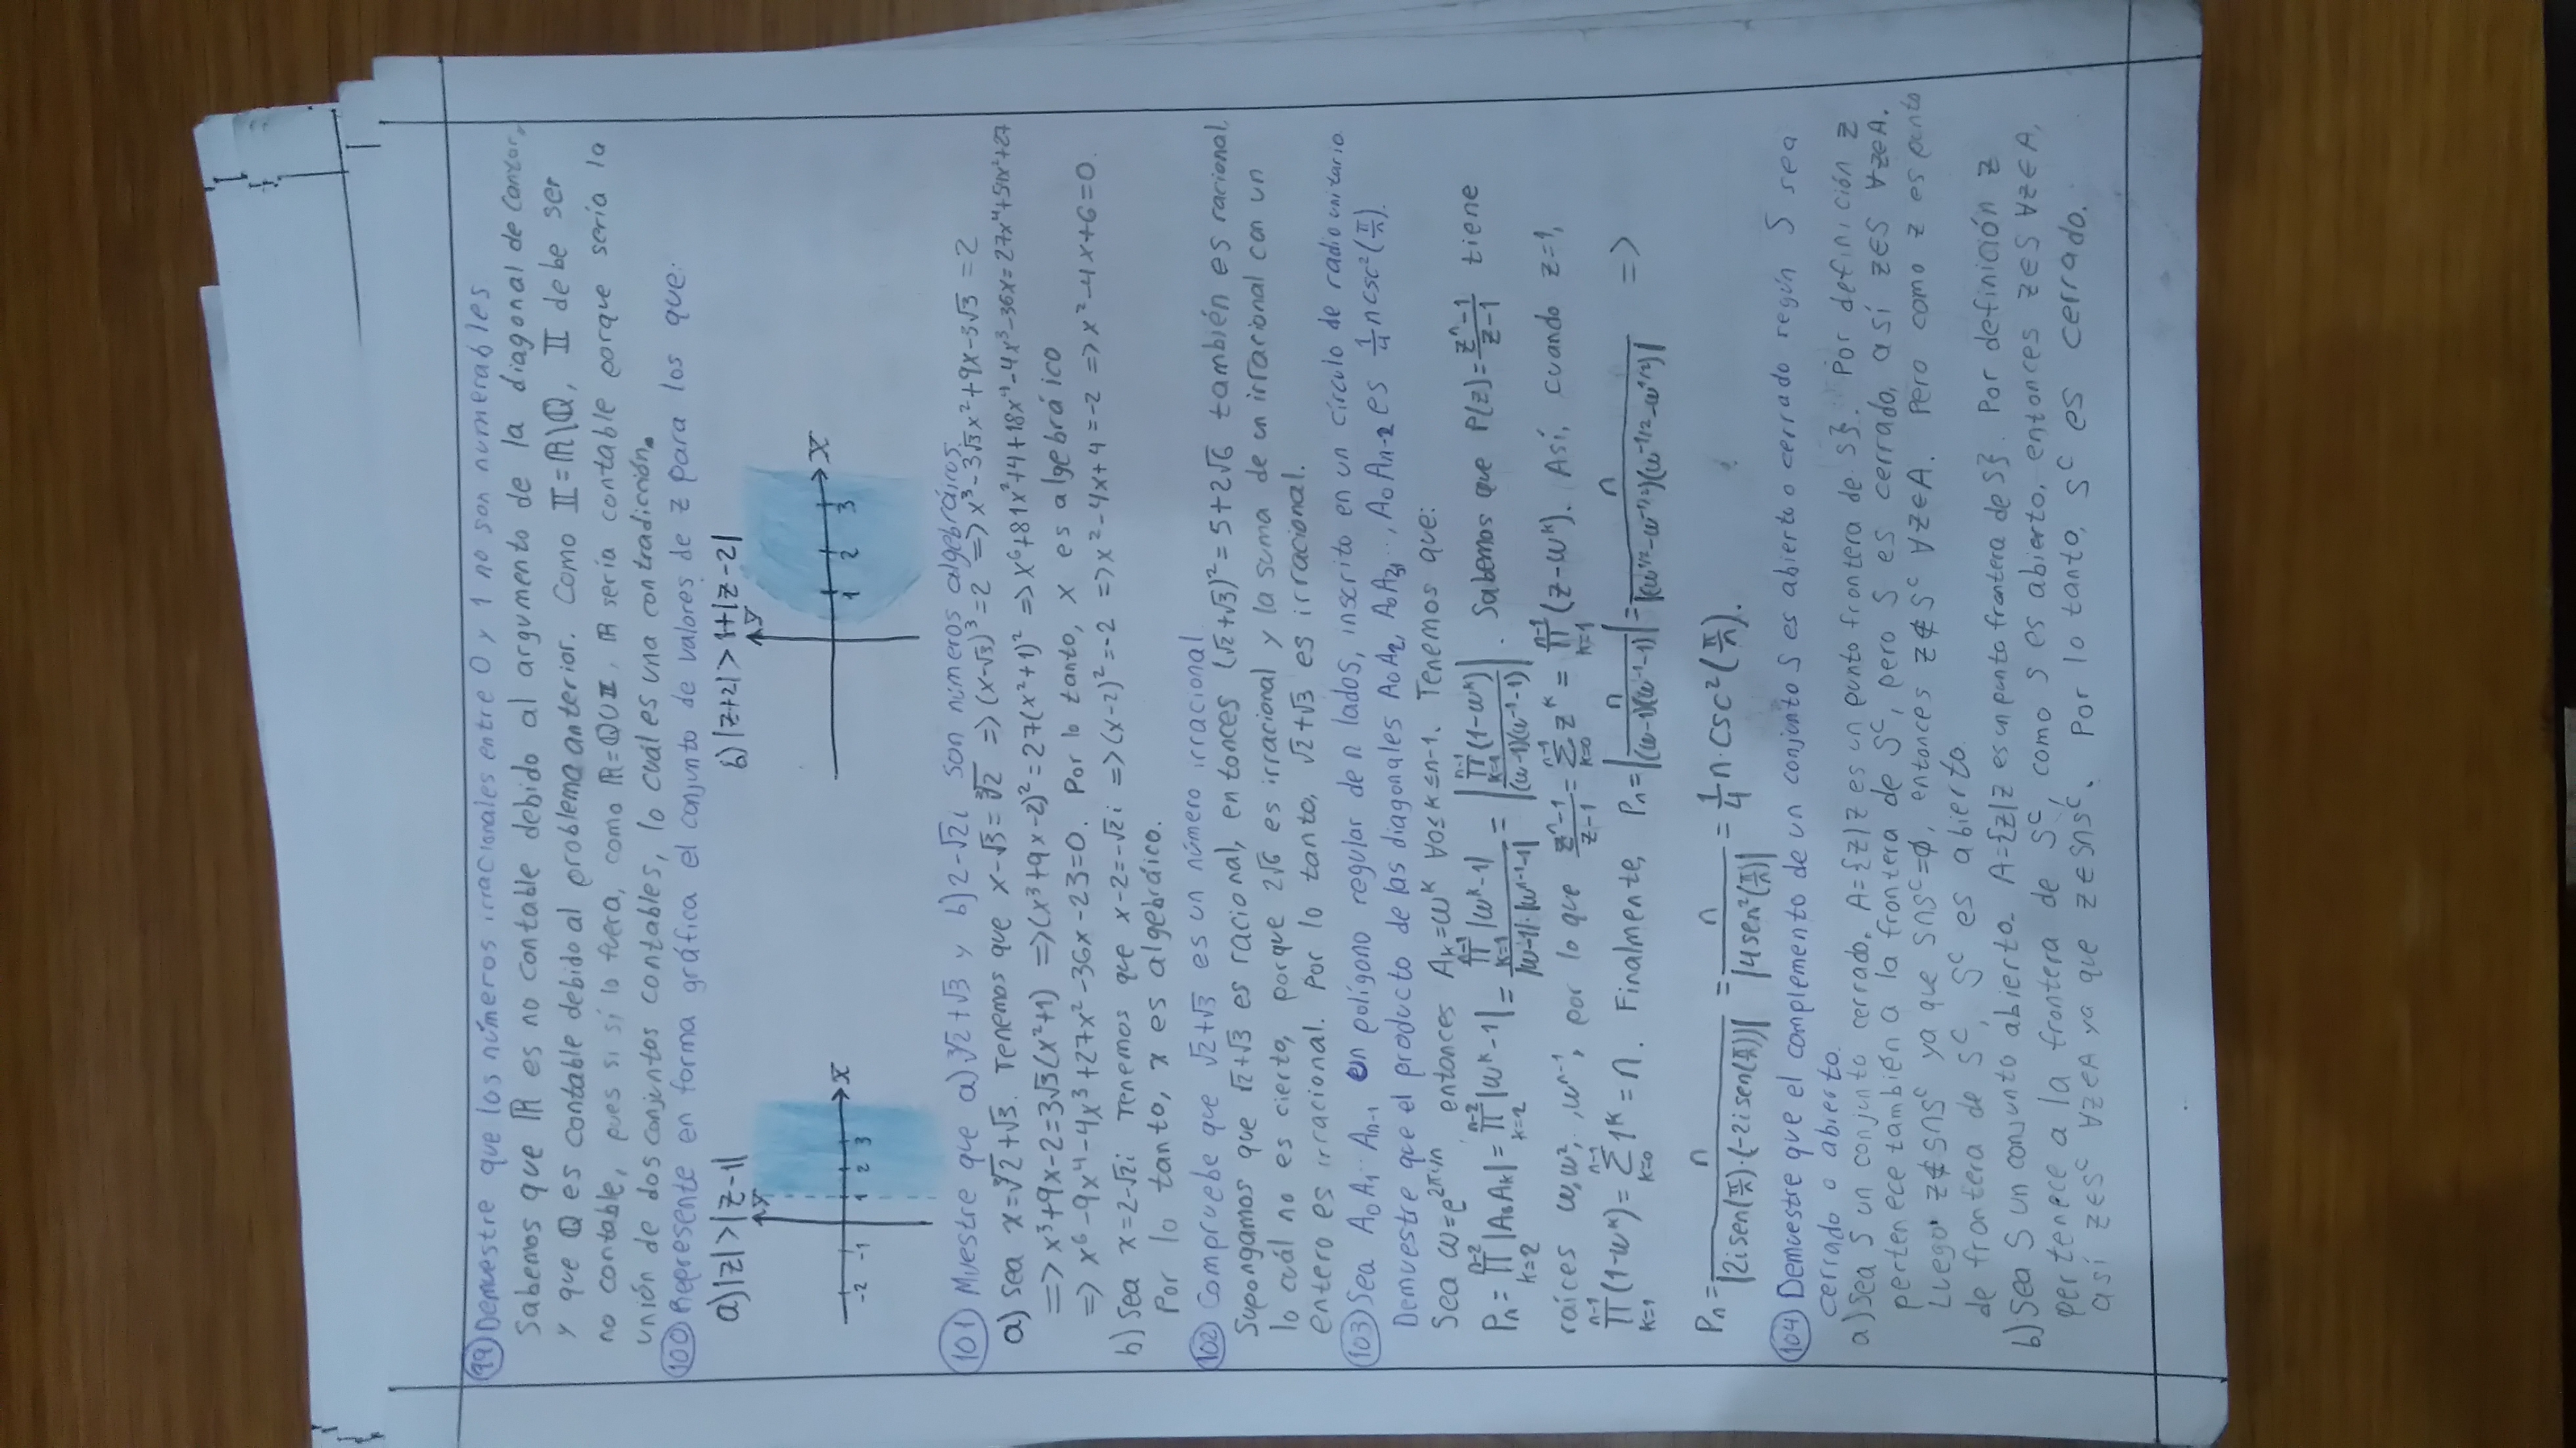 99) Demuestre que los números irracionales entre 0 y 1 no son numerables
Sabemos que ℝ es no contable debido al argumento de la diagonal de Cantor,
y que ℚ es contable debido al problema anterior. Como 𝕀=ℝ\ℚ, 𝕀 debe ser
no contable, pues si sí lo fuera, como ℝ=ℚ∪𝕀, ℝ sería contable porque sería la
unión de dos conjuntos contables, lo cuál es una contradicción.
100) Represente en forma gráfica el conjunto de valores de z para los que:
a) |z|>|z-1| b) |z+2|>1+|z-2|
y y
x x
-2 -1 1 2 3 1 2 3
101) Muestre que a) ∛2+√3 y b) 2-√2i son números algebráicos.
a) Sea x=∛2+√3. Tenemos que x-√3=∛2 => (x-√3)³=2 => x³-3√3x²+9x-3√3=2
=> x³+9x-2=3√3(x²+1) => (x³+9x-2)²=27(x²+1)² => x⁶+81x²+4+18x⁴-4x³-36x=27x⁴+54x²+27
=> x⁶-9x⁴-4x³+27x²-36x-23=0. Por lo tanto, x es algebráico
b) Sea x=2-√2i Tenemos que x-2=-√2i => (x-2)²=-2 => x²-4x+4=-2 => x²-4x+6=0.
Por lo tanto, x es algebráico.
102) Compruebe que √2+√3 es un número irracional
Supongamos que √2+√3 es racional, entonces (√2+√3)²=5+2√6 también es racional,
lo cuál no es cierto, porque 2√6 es irracional y la suma de un irracional con un
entero es irracional. Por lo tanto, √2+√3 es irracional.
103) Sea A₀A₁...Aₙ₋₁ un polígono regular de n lados, inscrito en un círculo de radio unitario
Demuestre que el producto de las diagonales A₀A₂, A₀A₃,..., A₀Aₙ₋₂ es 1/4 n csc²(π/n).
Sea ω=e^(2πi/n), entonces Aₖ=ωᵏ ∀0≤k≤n-1. Tenemos que:
Pₙ = ∏_{k=2}^{n-2} |A₀Aₖ| = ∏_{k=2}^{n-2} |ωᵏ-1| = ∏_{k=1}^{n-1} |ωᵏ-1| / |ω-1|·|ωⁿ⁻¹-1| = |∏_{k=1}^{n-1} (1-ωᵏ) / (ω-1)(ω⁻¹-1)|. Sabemos que P(z)=(zⁿ-1)/(z-1) tiene
raíces ω,ω²,..,ωⁿ⁻¹, por lo que (zⁿ-1)/(z-1) = ∑_{k=0}^{n-1} zᵏ = ∏_{k=1}^{n-1} (z-ωᵏ). Así, cuando z=1,
∏_{k=1}^{n-1} (1-ωᵏ) = ∑_{k=0}^{n-1} 1ᵏ = n. Finalmente, Pₙ = |n/((ω-1)(ω⁻¹-1))| = n/|(ω^(1/2)-ω^(-1/2))(ω^(-1/2)-ω^(1/2))| =>
Pₙ = n/|2i sen(π/n)·(-2i sen(π/n))| = n/|4sen²(π/n)| = 1/4 n·csc²(π/n).
104) Demuestre que el complemento de un conjunto S es abierto o cerrado según S sea
cerrado o abierto.
a) Sea S un conjunto cerrado. A={z|z es un punto frontera de S}. Por definición z
pertenece también a la frontera de Sᶜ, pero S es cerrado, así z∈S ∀z∈A.
Luego z∉S∩Sᶜ ya que S∩Sᶜ=∅, entonces z∉Sᶜ ∀z∈A. Pero como z es punto
de frontera de Sᶜ, Sᶜ es abierto.
b) Sea S un conjunto abierto. A={z|z es un punto frontera de S}. Por definición z
pertenece a la frontera de Sᶜ, como S es abierto, entonces z∈S ∀z∈A,
así z∈Sᶜ ∀z∈A ya que z∈S∩Sᶜ. Por lo tanto, Sᶜ es cerrado.